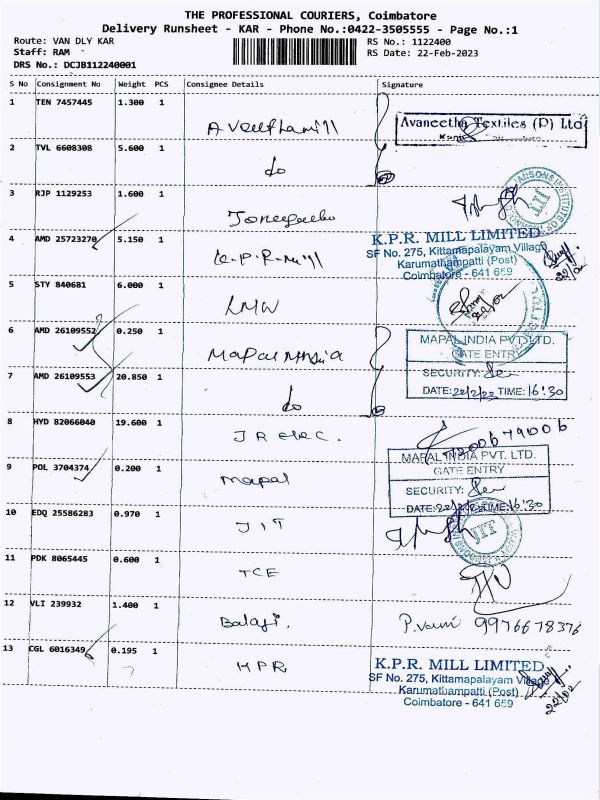 THE PROFESSIONAL COURIERS, Coimbatore
Delivery Runsheet - KAR - Phone No.:0422-3505555 - Page No.:1
Route: VAN DLY KAR RS No.: 1122400
Staff: RAM RS Date: 22-Feb-2023
DRS No.: DCJB112240001
S No Consignment No Weight PCS Consignee Details Signature
1 TEN 7457445 1.300 1 Avaneetha Textiles (P) Ltd
2 TVL 6608308 5.600 1 do
3 RJP 1129253 1.600 1
4 AMD 25723270 5.150 1 K.P.R. mill K.P.R. MILL LIMITED
SF No. 275, Kittamapalayam Village
Karumathampatti (Post)
Coimbatore - 641 659
22/02
5 STY 840681 6.000 1 LMW
6 AMD 26109552 0.250 1 Mapal India MAPAL INDIA PVT LTD.
GATE ENTRY
SECURITY:
7 AMD 26109553 20.850 1 do DATE: 22/2/22 TIME: 16:30
8 HYD 82066040 19.600 1 JR elec.
MAPAL INDIA PVT. LTD.
9 POL 3704374 0.200 1 mapal GATE ENTRY
SECURITY:
DATE: 22/2/22 TIME: 16:30
10 EDQ 25586283 0.970 1 JIT JIT
11 PDK 8065445 0.600 1 TCE
12 VLI 239932 1.400 1 Balaji. P. vani 9976678376
13 CGL 6016349 0.195 1 KPR K.P.R. MILL LIMITED
SF No. 275, Kittamapalayam Village
Karumathampatti (Post)
Coimbatore - 641 659
22/02